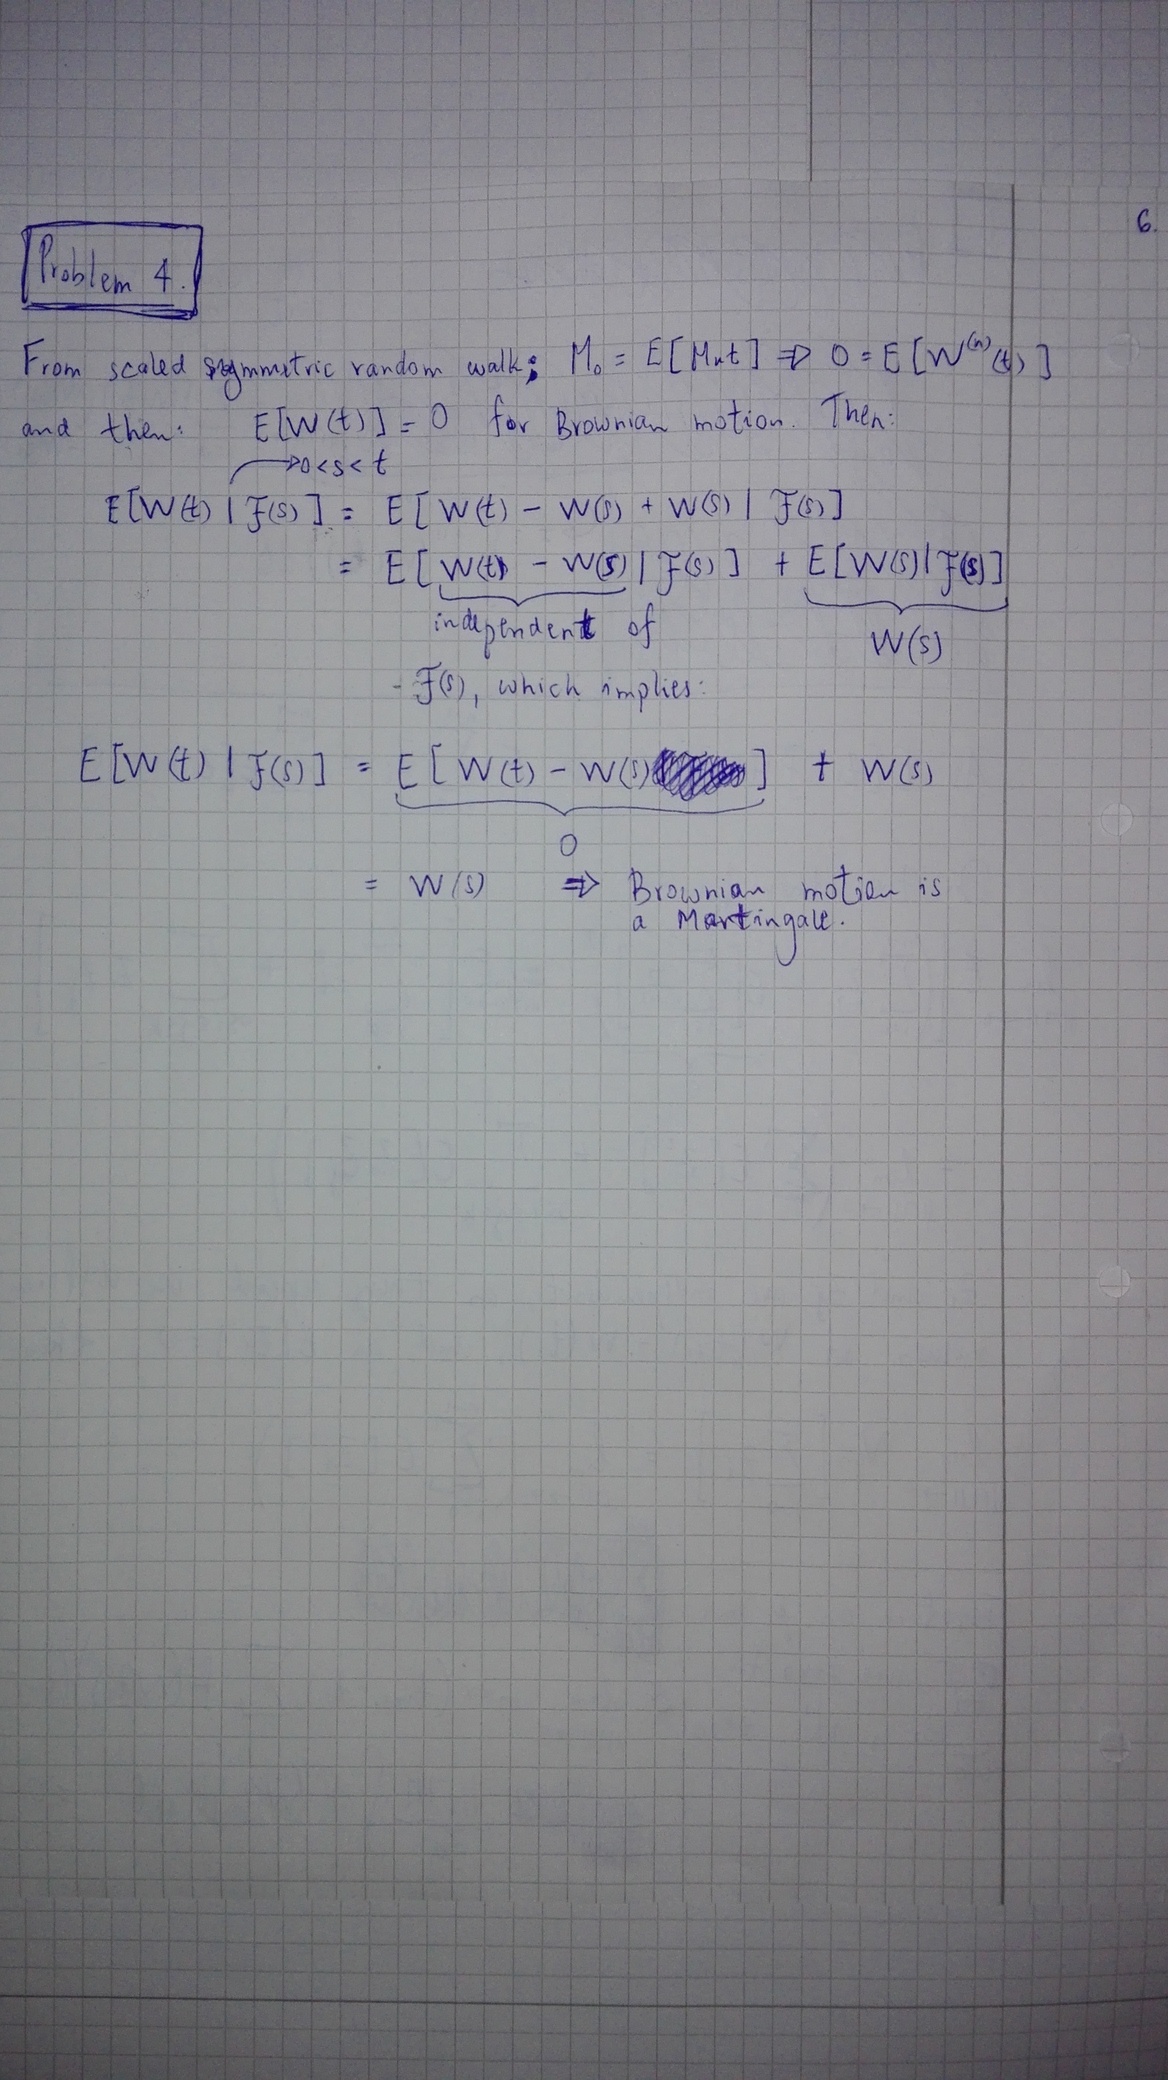 6.
Problem 4.
From scaled symmetric random walk; M₀ = E[Mnt] ⇒ 0 = E[W⁽ⁿ⁾(t)]
and then: E[W(t)] = 0 for Brownian motion. Then:
→ 0<s<t
E[W(t) | F(s)] = E[W(t) - W(s) + W(s) | F(s)]
= E[W(t) - W(s) | F(s)] + E[W(s) | F(s)]
independent of W(s)
F(s), which implies:
E[W(t) | F(s)] = E[W(t) - W(s)] + W(s)
0
= W(s) ⇒ Brownian motion is
a Martingale.